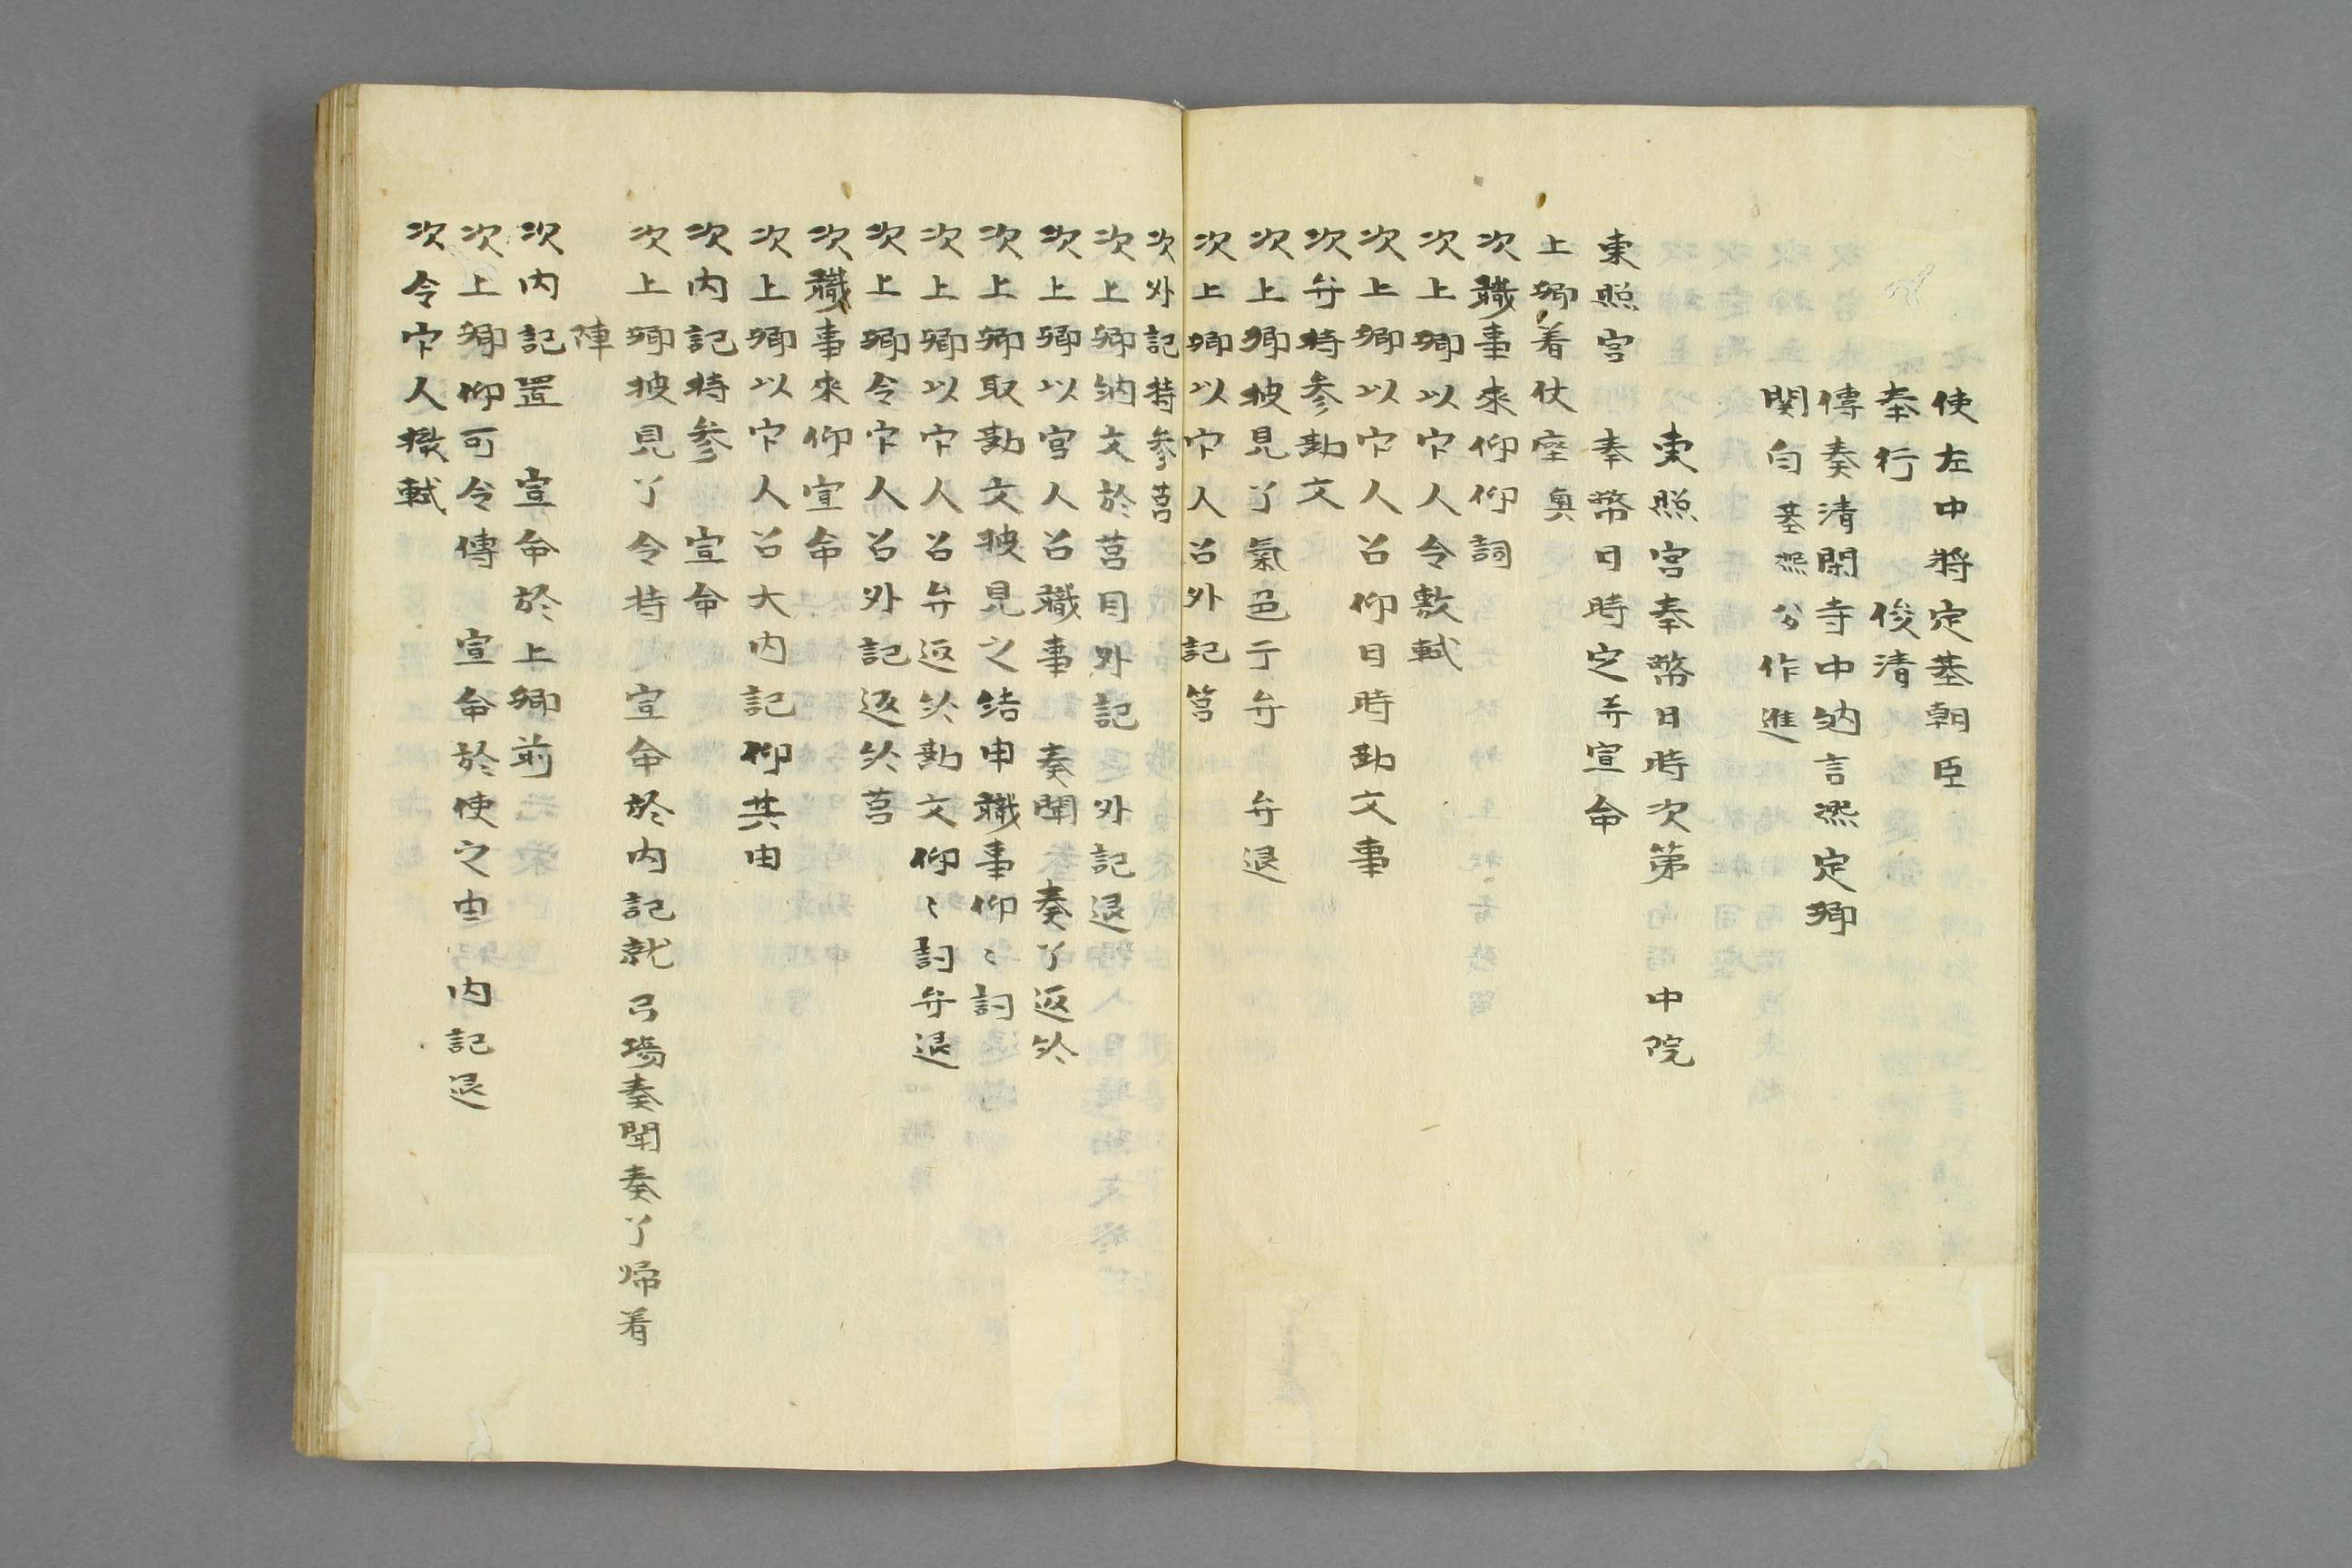 使左中将定基朝臣
奉行 俊清
傳奏清閑寺中納言熈定卿
関白基熈公作進
東照宮奉幣日時次第 中院
東照宮 奉幣日時定并宣命
上卿着仗座奥
次職事来仰仰詞
次上卿以官人令敷軾
次上卿以官人召仰日時勘文事
次弁持参勘文
次上卿披見了氣色于弁 弁退
次上卿以官人召外記筥
次外記持参筥
次上卿納文於筥目外記 外記退
次上卿以官人召職事 奏聞 奏了返給
次上卿取勘文披見之結申職事仰〻詞
次上卿以官人召弁返給勘文仰〻詞弁退
次上卿令官人召外記返給筥
次職事来仰宣命
次上卿以官人召大内記仰其由
次内記持参 宣命
次上卿披見了令持 宣命於内記就弓場奏聞奏了帰着
陣
次内記置 宣命於上卿前
次上卿仰可令傳 宣命於使之由 内記退
次令官人撤軾